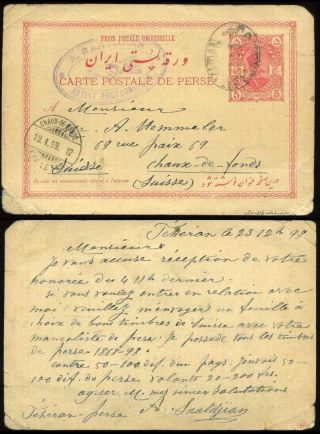 UNION POSTALE UNIVERSELLE
ورقه پستی ایران
CARTE POSTALE DE PERSE
ARTIST PHOTOGR
5
5
A Monsieur
A. Memmeler
69 rue paix 69
Chaux-de-fonds
Suisse
(Suisse)
CHAUX-DE-FONDS
19.I.99
Ce côté est exclusivement réservé à l'adresse
Téhéran le 23 12bre 98
Monsieur
Je vous accuse réception de votre
honorée du 4 dernier.
si vous voulez entrer en relation avec
moi veuillez ménager un feuille à
choix de bons timbres de Suisse avec votre
mancoliste de perse. Je possède tous les timbres
de perse 1868-98.
contre 50-100 dif. d'un pays. J'envoi 50-
100 dif. de perse volonté 20-200 frs.
agréer M. mes sincer Salutations
Téhéran-perse